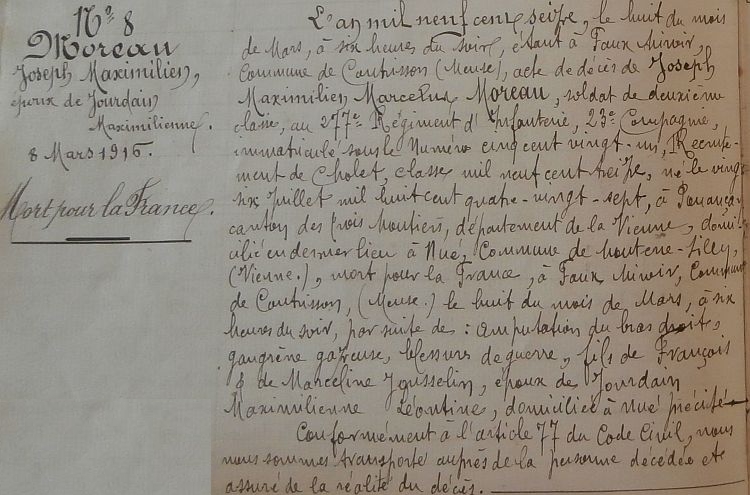 Nº 8
Moreau
Joseph Maximilien,
époux de Jourdain
Maximilienne.
8 Mars 1916.
Mort pour la France.
L'an mil neuf cent seize, le huit du mois
de Mars, à six heures du soir, étant à Faux Miroir,
Commune de Contrisson (Meuse), acte de décès de Joseph
Maximilien Marcellus Moreau, soldat de deuxième
classe, au 277e Régiment d'Infanterie, 23e Compagnie,
immatriculé sous le Numéro cinq cent vingt-un, Recrute-
ment de Cholet, classe mil neuf cent treize, né le vingt
six Juillet mil huit cent quatre-vingt-sept, à Pouançay
canton des Trois Moutiers, département de la Vienne, domi-
cilié en dernier lieu à Nué, Commune de
(Vienne.), mort pour la France, à Faux Miroir, Commune
de Contrisson, (Meuse.) le huit du mois de Mars, à six
heures du soir, par suite de : amputation du bras droit,
gangrène gazeuse, blessures de guerre, fils de François
& de Marceline Jousselin, époux de Jourdain
Maximilienne Léontine, domiciliée à Nué précité
Conformément à l'article 77 du Code Civil, nous
nous sommes transporté auprès de la personne décédée et
assuré de la réalité du décès.